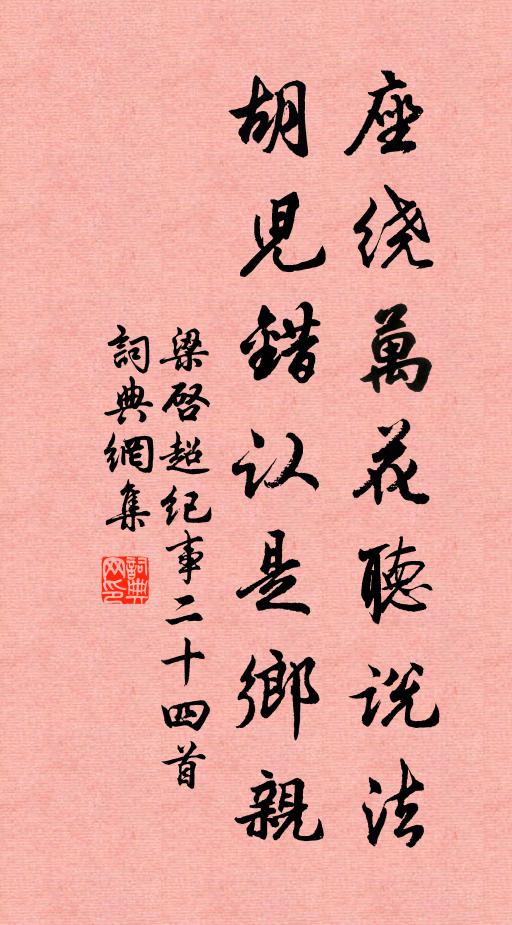 座绕萬花聽说法
胡児錯认是鄉親
梁启超纪事二十四首
詞典網集
詞典网印